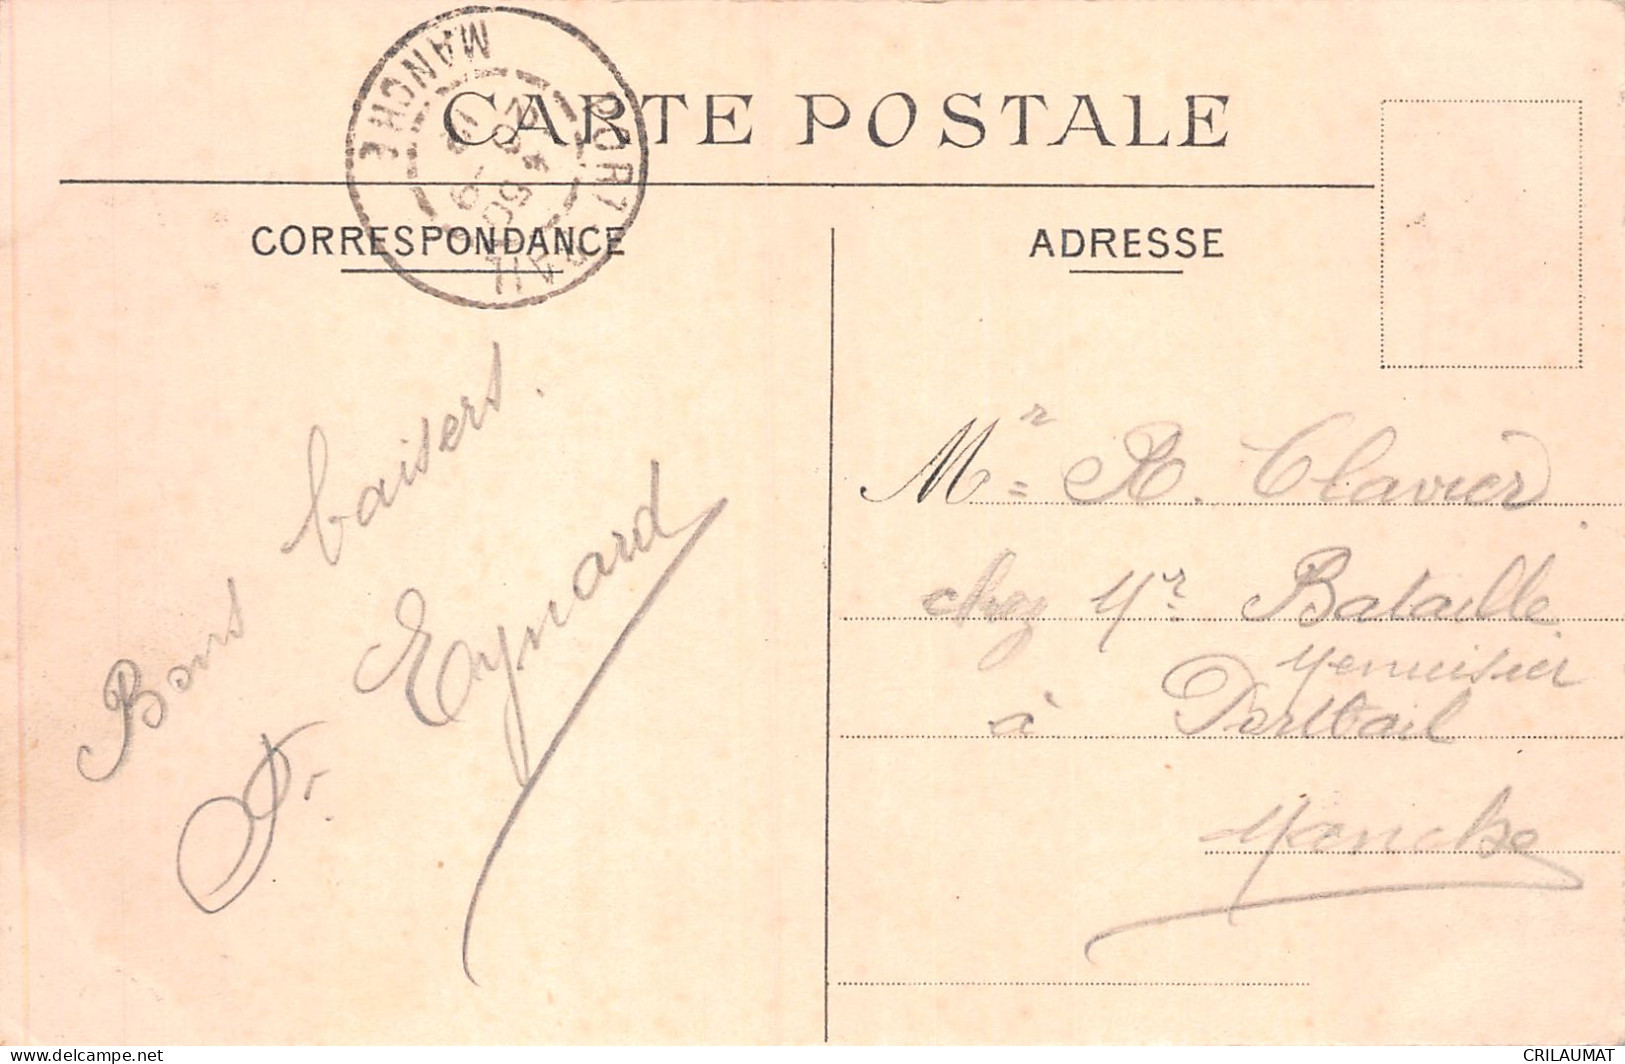 CARTE POSTALE
MANCHE
PORTBAIL
CORRESPONDANCE
ADRESSE
Bons baisers.
Eynard
Mr R. Clavier
chez Mr Bataille
Menuisier
à Portbail
Manche
delcampe.net
CRILAUMAT